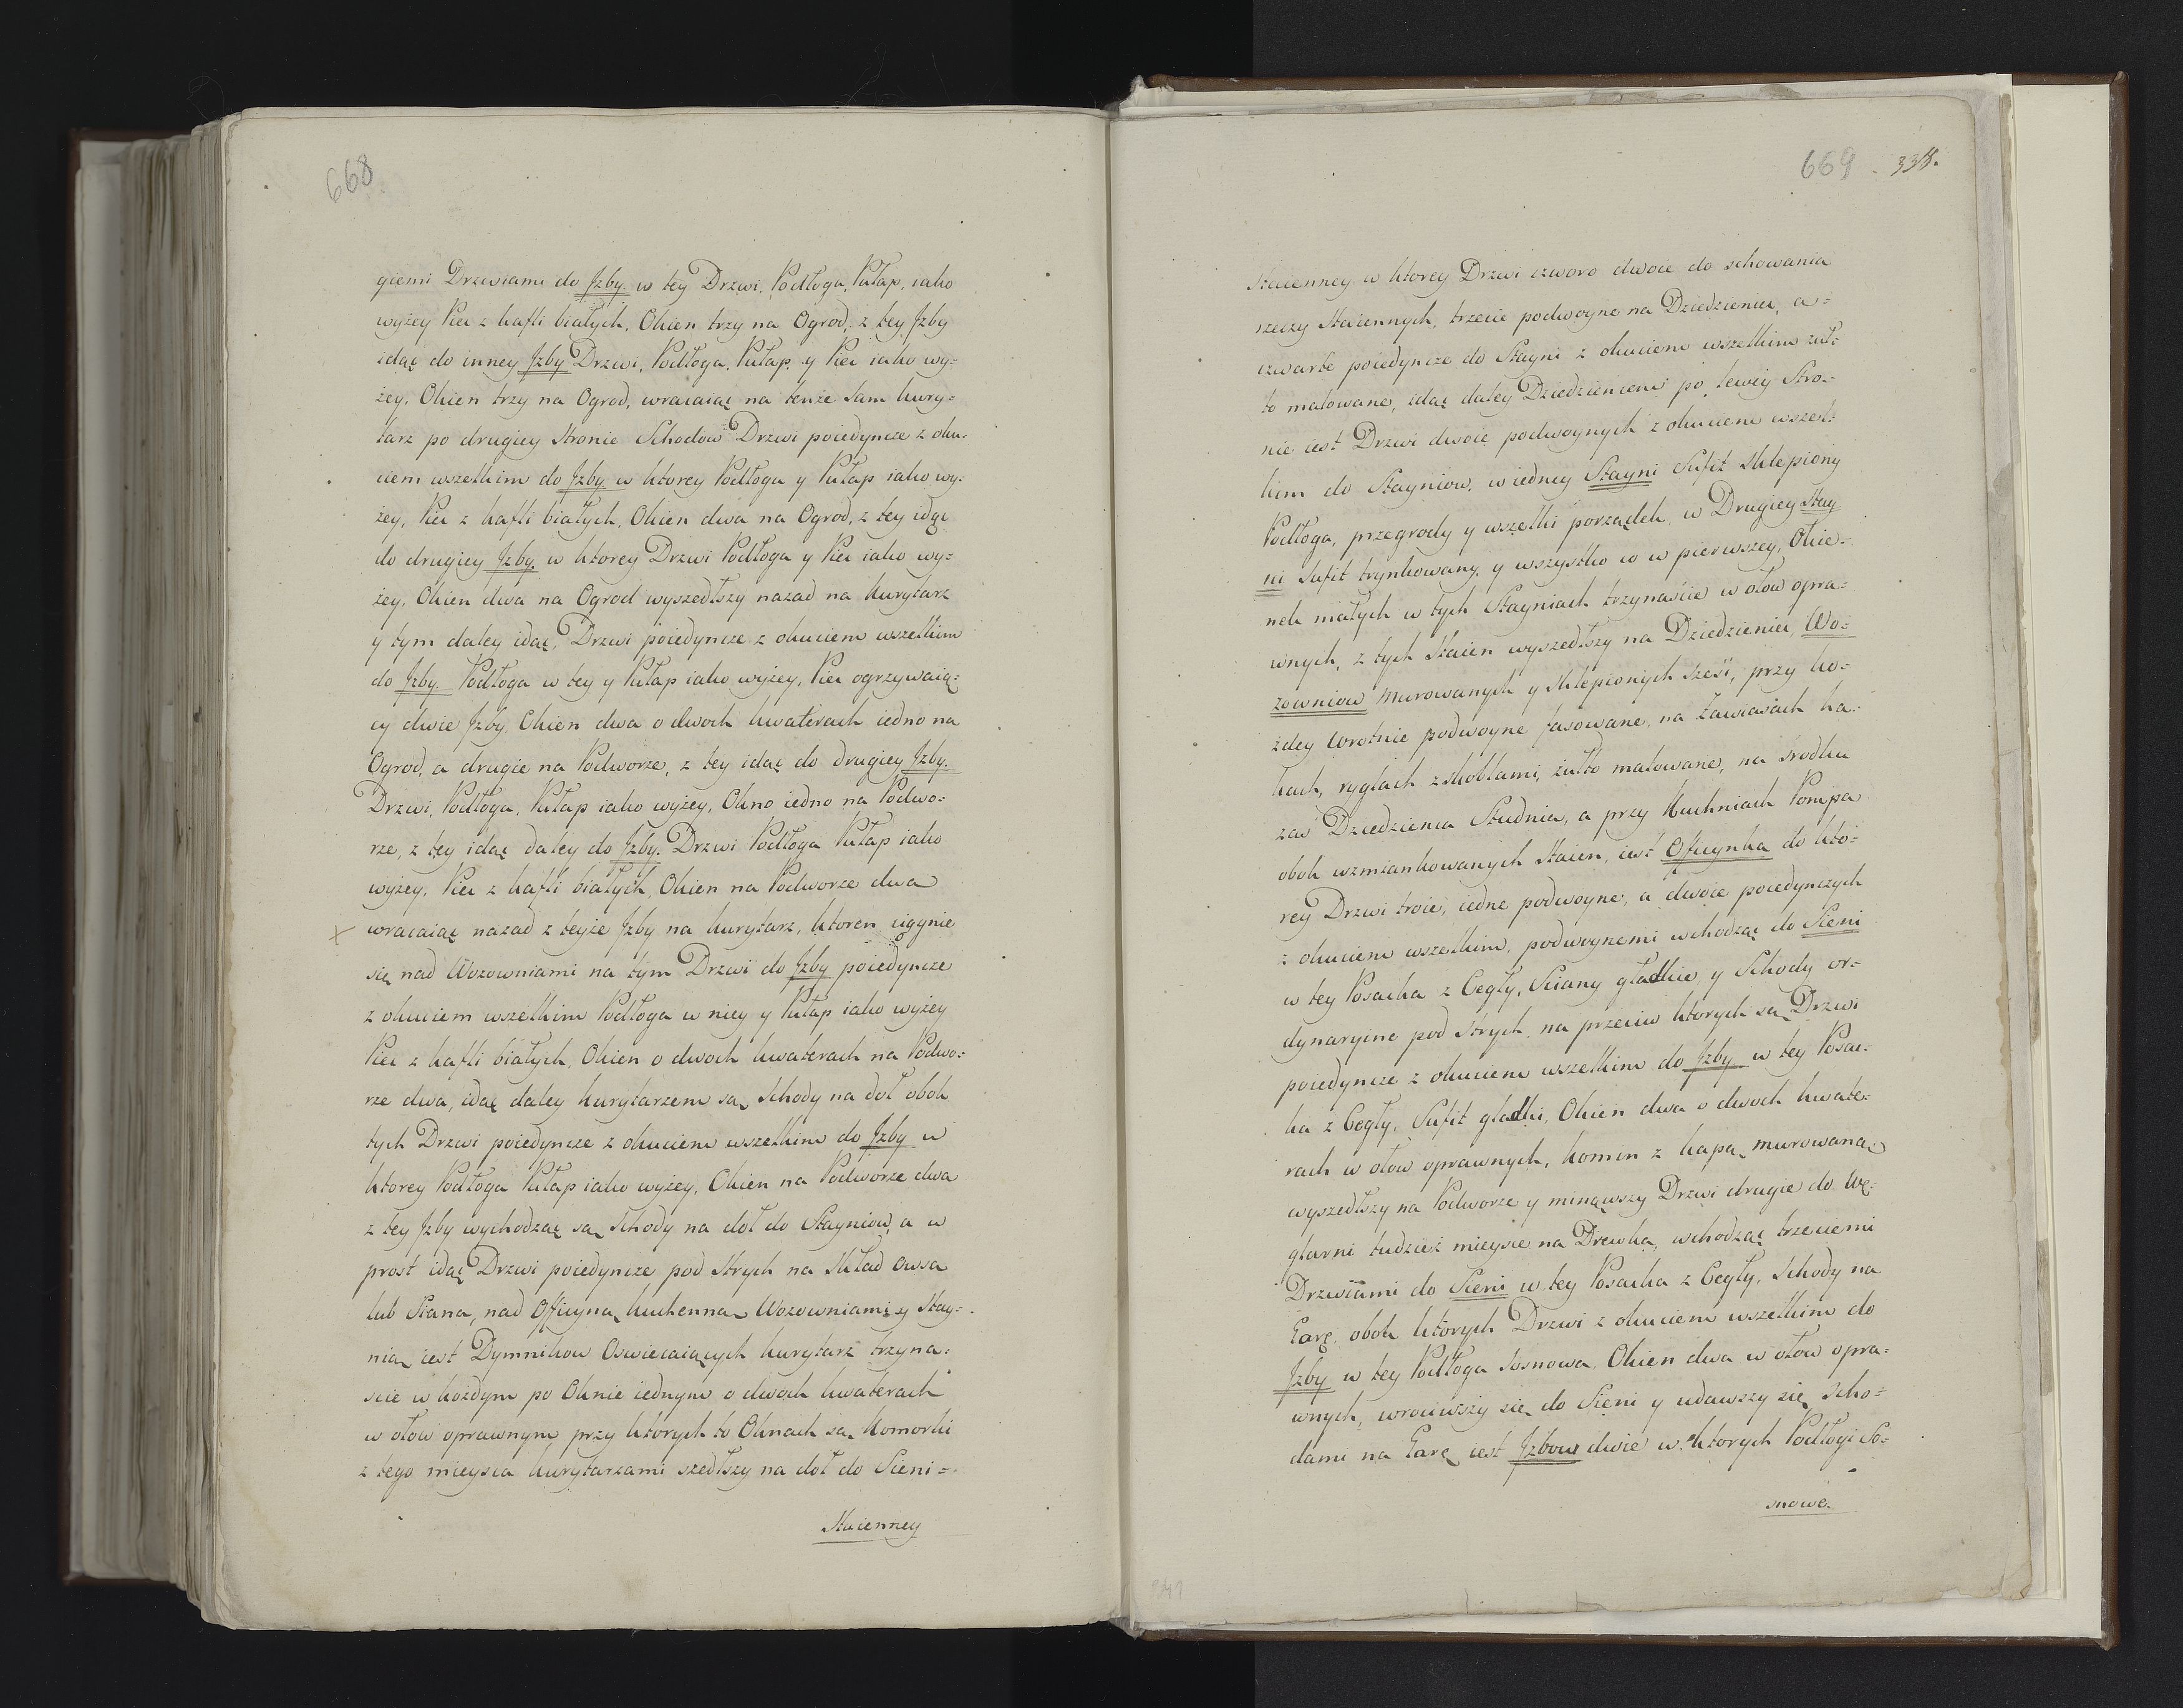 668
giemi Drzwiami do Jzby w tey Drzwi, Podłoga, Pułap, iako
wyżey Piec z kafli białych, Okien trzy na Ogrod, z tey Jzby
idąc do inney Jzby Drzwi, Podłoga, Pułap, y Piec iako wy=
żey, Okien trzy na Ogrod, wracaiąc na tenże sam kury=
tarz po drugiey stronie Schodow Drzwi poiedyncze z oku=
ciem wszelkim do Jzby w ktorey Podłoga y Pułap iako wy=
żey, Piec z kafli białych, Okien dwa na Ogrod, z tey idąc
do drugiey Jzby, w ktorey Drzwi Podłoga y Piec iako wy=
żey, Okien dwa na Ogrod wyszedłszy nazad na kurytarz
y tym daley idąc, Drzwi poiedyncze z okuciem wszelkim
do Jzby Podłoga w tey y Pułap iako wyżey, Piec ogrzywaią=
cy dwie Jzby, Okien dwa o dwoch kwaterach iedno na
Ogrod, a drugie na Podworze, z tey idąc do drugiey Jzby
Drzwi, Podłoga, Pułap iako wyżey, Okno iedno na Podwo=
rze, z tey idąc daley do Jzby Drzwi Podłoga Pułap iako
wyżey, Piec z kafli białych, Okien na Podworze dwa
wracaiąc nazad z teyże Jzby na kurytarz, ktoren ciągnie
się nad Wozowniami na tym Drzwi do Jzby poiedyncze
z okuciem wszelkim Podłoga w niey y Pułap iako wyżey
Piec z kafli białych, Okien o dwoch kwaterach na Podwo=
rze dwa, idąc daley kurytarzem są Schody na doł obok
tych Drzwi poiedyncze z okuciem wszelkim do Jzby w
ktorey Podłoga Pułap iako wyżey, Okien na Podworze dwa
z tey Jzby wychodząc są Schody na doł do Stayniow, a w
prost idąc Drzwi poiedyncze pod Strych na Skład Owsa
lub Siana, nad Officyną kuchenną Wozowniami y Stay=
nią iest Dymnikow Oswiecaiących kurytarz trzyna=
scie w każdym po Oknie iednym o dwoch kwaterach
w ołow oprawnym przy ktorych to Oknach są komorki
z tego mieysca kurytarzami szedłszy na doł do Sieni=
Staienney
669 338.
Staienney w ktorey Drzwi czworo dwoie do schowania
rzeczy Staiennych, trzecie podwoyne na Dziedziniec, a=
czwarte poiedyncze do Stayni z okuciem wszelkim żuł=
to malowane, idąc daley Dziedzieńcem po lewey Stro=
nie iest Drzwi dwoie podwoynych z okuciem wszel=
kim do Stayniow, w iedney Stayni Sufit sklepiony
Podłoga, przegrody y wszelki porządek, w Drugiey Stay
ni Sufit trynkowany, y wszystko co w pierwszey, Okie=
nek małych w tych Stayniach trzynaście w ołow opra=
wnych, z tych Staien wyszedłszy na Dziedzieniec, Wo=
zowniow murowanych y sklepionych sześć, przy ka=
żdey Wrotnie podwoyne fasowane, na zawiasach ha=
kach, ryglach z skoblami, żułto malowane, na środku
zaś Dziedzienca Studnia, a przy Kuchniach Pompa
obok wzmiankowanych Staien, iest Oficynka do kto=
rey Drzwi troie, iedne podwoyne, a dwoie poiedynczych
z okuciem wszelkim, podwoynemi wchodząc do Sieni
w tey Posacka z Cegły, Sciany gładkie y Schody or=
dynaryine pod strych, na przeciw ktorych są Drzwi
poiedyncze z okuciem wszelkim do Jzby w tey Posac=
ka z Cegły, Sufit gładki, Okien dwa o dwoch kwate=
rach w ołow oprawnych, komin z kapą murowaną,
wyszedłszy na Podworze y minąwszy Drzwi drugie do Wę=
glarni tudzież mieysce na Drewka, wchodząc trzeciemi
Drzwiami do Sieni w tey Posacka z Cegły, Schody na
Garę, obok ktorych Drzwi z okuciem wszelkim do
Jzby w tey Podłoga sosnowa, Okien dwa w ołow opra=
wnych, wrociwszy się do Sieni y udawszy się Scho=
dami na Garę iest Jzbow dwie w ktorych Podłogi So=
snowe.